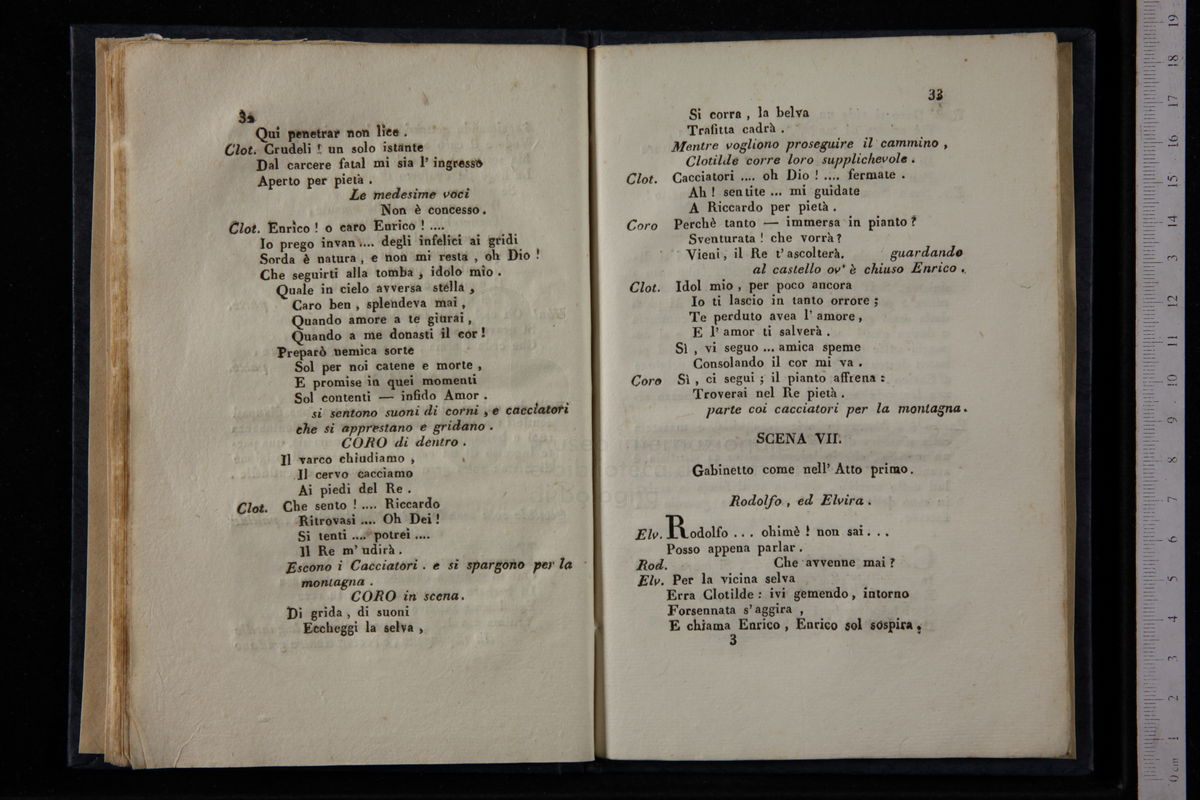 32
Qui penetrar non lice .
Clot. Crudeli ! un solo istante
Dal carcere fatal mi sia l' ingresso
Aperto per pietà .
Le medesime voci
Non è concesso .
Clot. Enrico ! o caro Enrico ! ....
Io prego invan .... degli infelici ai gridi
Sorda è natura , e non mi resta , oh Dio !
Che seguirti alla tomba , idolo mio .
Quale in cielo avversa stella ,
Caro ben , splendeva mai ,
Quando amore a te giurai ,
Quando a me donasti il cor !
Preparò nemica sorte
Sol per noi catene e morte ,
E promise in quei momenti
Sol contenti — infido Amor .
si sentono suoni di corni , e cacciatori
che si apprestano e gridano .
CORO di dentro .
Il varco chiudiamo ,
Il cervo cacciamo
Ai piedi del Re .
Clot. Che sento ! .... Riccardo
Ritrovasi .... Oh Dei !
Si tenti .... potrei ....
Il Re m' udirà .
Escono i Cacciatori . e si spargono per la
montagna .
CORO in scena .
Di grida , di suoni
Eccheggi la selva ,
33
Si corra , la belva
Trafitta cadrà .
Mentre vogliono proseguire il cammino ,
Clotilde corre loro supplichevole .
Clot. Cacciatori .... oh Dio ! .... fermate .
Ah ! sentite ... mi guidate
A Riccardo per pietà .
Coro Perchè tanto — immersa in pianto ?
Sventurata ! che vorrà ?
Vieni , il Re t' ascolterà. guardando
al castello ov' è chiuso Enrico .
Clot. Idol mio , per poco ancora
Io ti lascio in tanto orrore ;
Te perduto avea l' amore ,
E l' amor ti salverà .
Sì , vi seguo ... amica speme
Consolando il cor mi va .
Coro Sì , ci segui ; il pianto affrena :
Troverai nel Re pietà .
parte coi cacciatori per la montagna .
SCENA VII.
Gabinetto come nell' Atto primo .
Rodolfo , ed Elvira .
Elv. Rodolfo . . . ohimè ! non sai . . .
Posso appena parlar .
Rod. Che avvenne mai ?
Elv. Per la vicina selva
Erra Clotilde : ivi gemendo , intorno
Forsennata s' aggira ,
E chiama Enrico , Enrico sol sospira .
3
0 cm 1 2 3 4 5 6 7 8 9 10 11 12 13 14 15 16 17 18 19